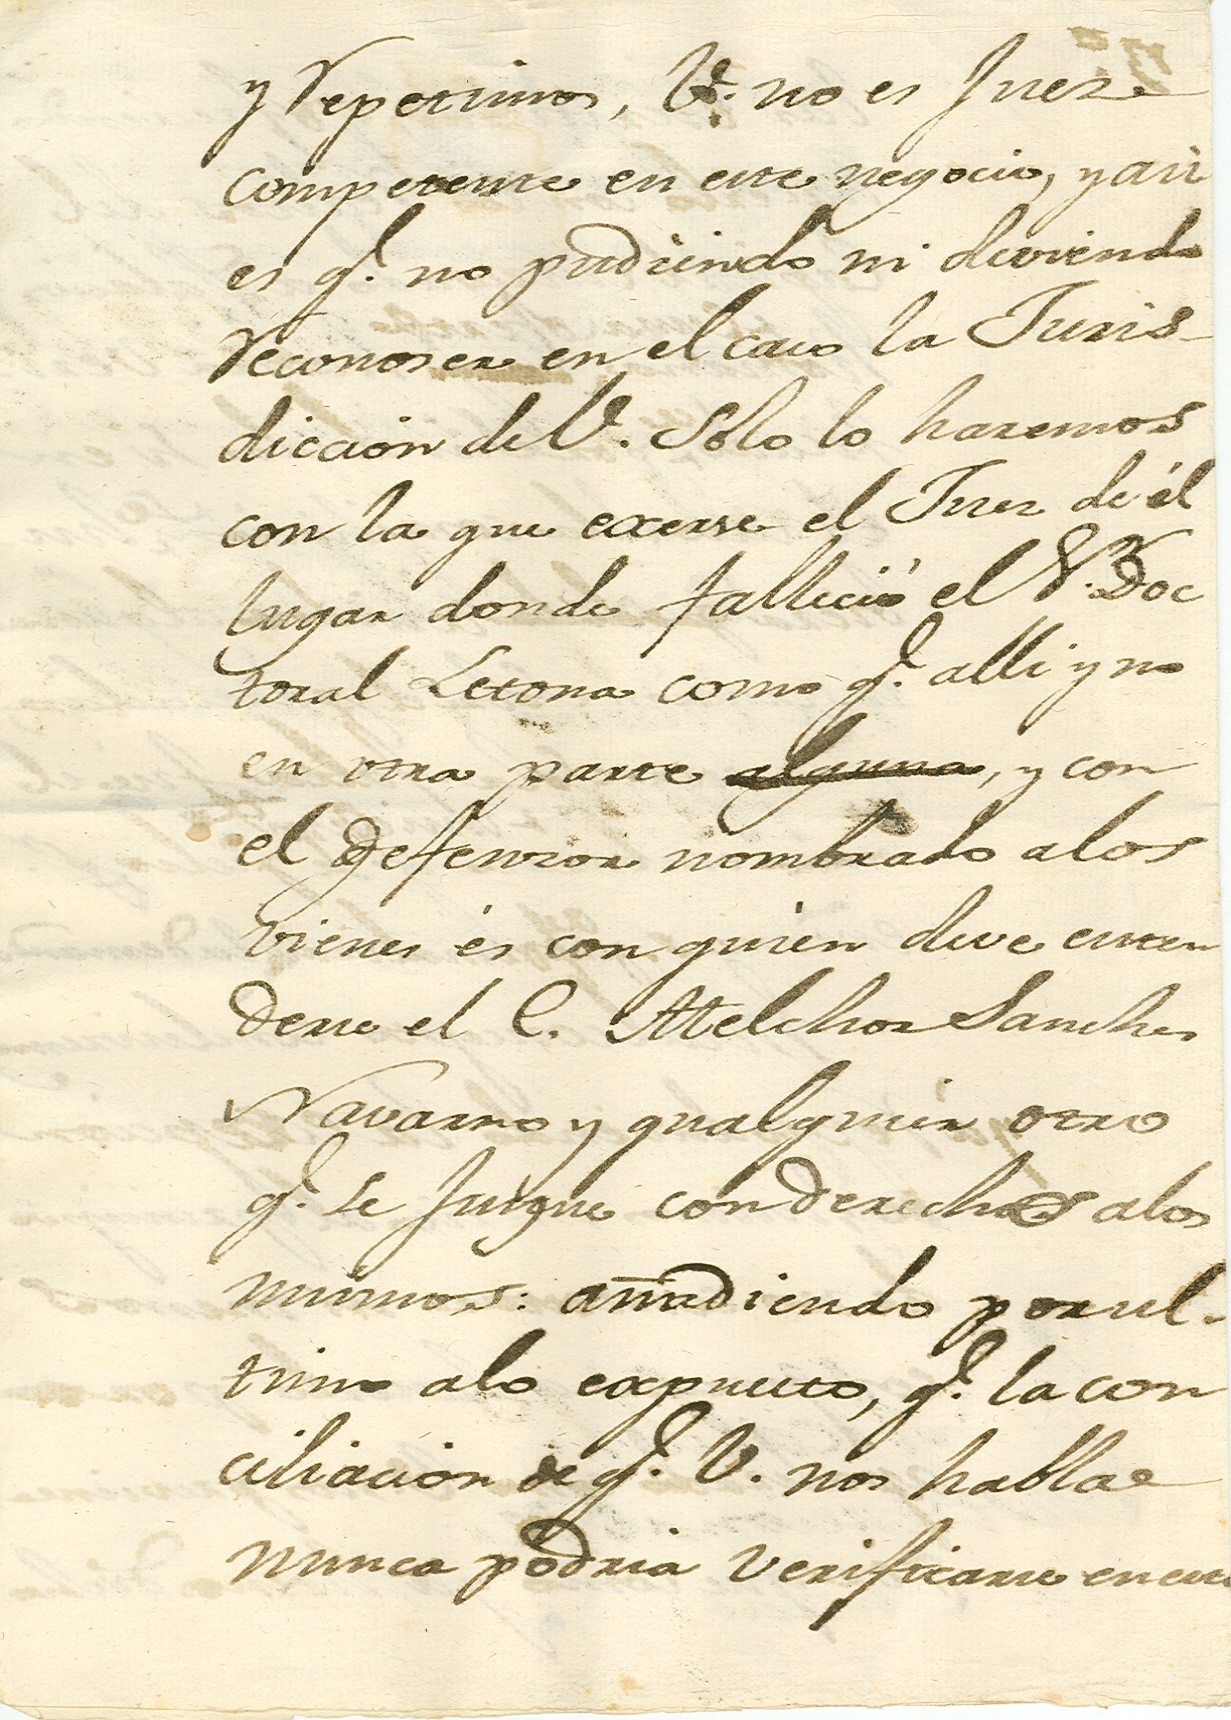 y repetimos, V. no es Juez
competente en este negocio, y asi
es q.e no pudiendo ni deviendo
reconoser en el caso la Juris-
dicción de V. Solo lo haremos
con la que exerse el Juez de él
lugar donde fallició el S.or Doc
toral Letona como q.e alli y no
en otra parte alguna, y con
el defensor nombrado a los
vienes és con quien deve enten
derse el C. Melchor Sanches
Navarro y qualquier otro
q.e se jusgue con derechos a los
mismos: añadiendo por ul-
timo alo expuesto, q.e la con
ciliación de q.e V. nos habla
nunca podria verificarse en este